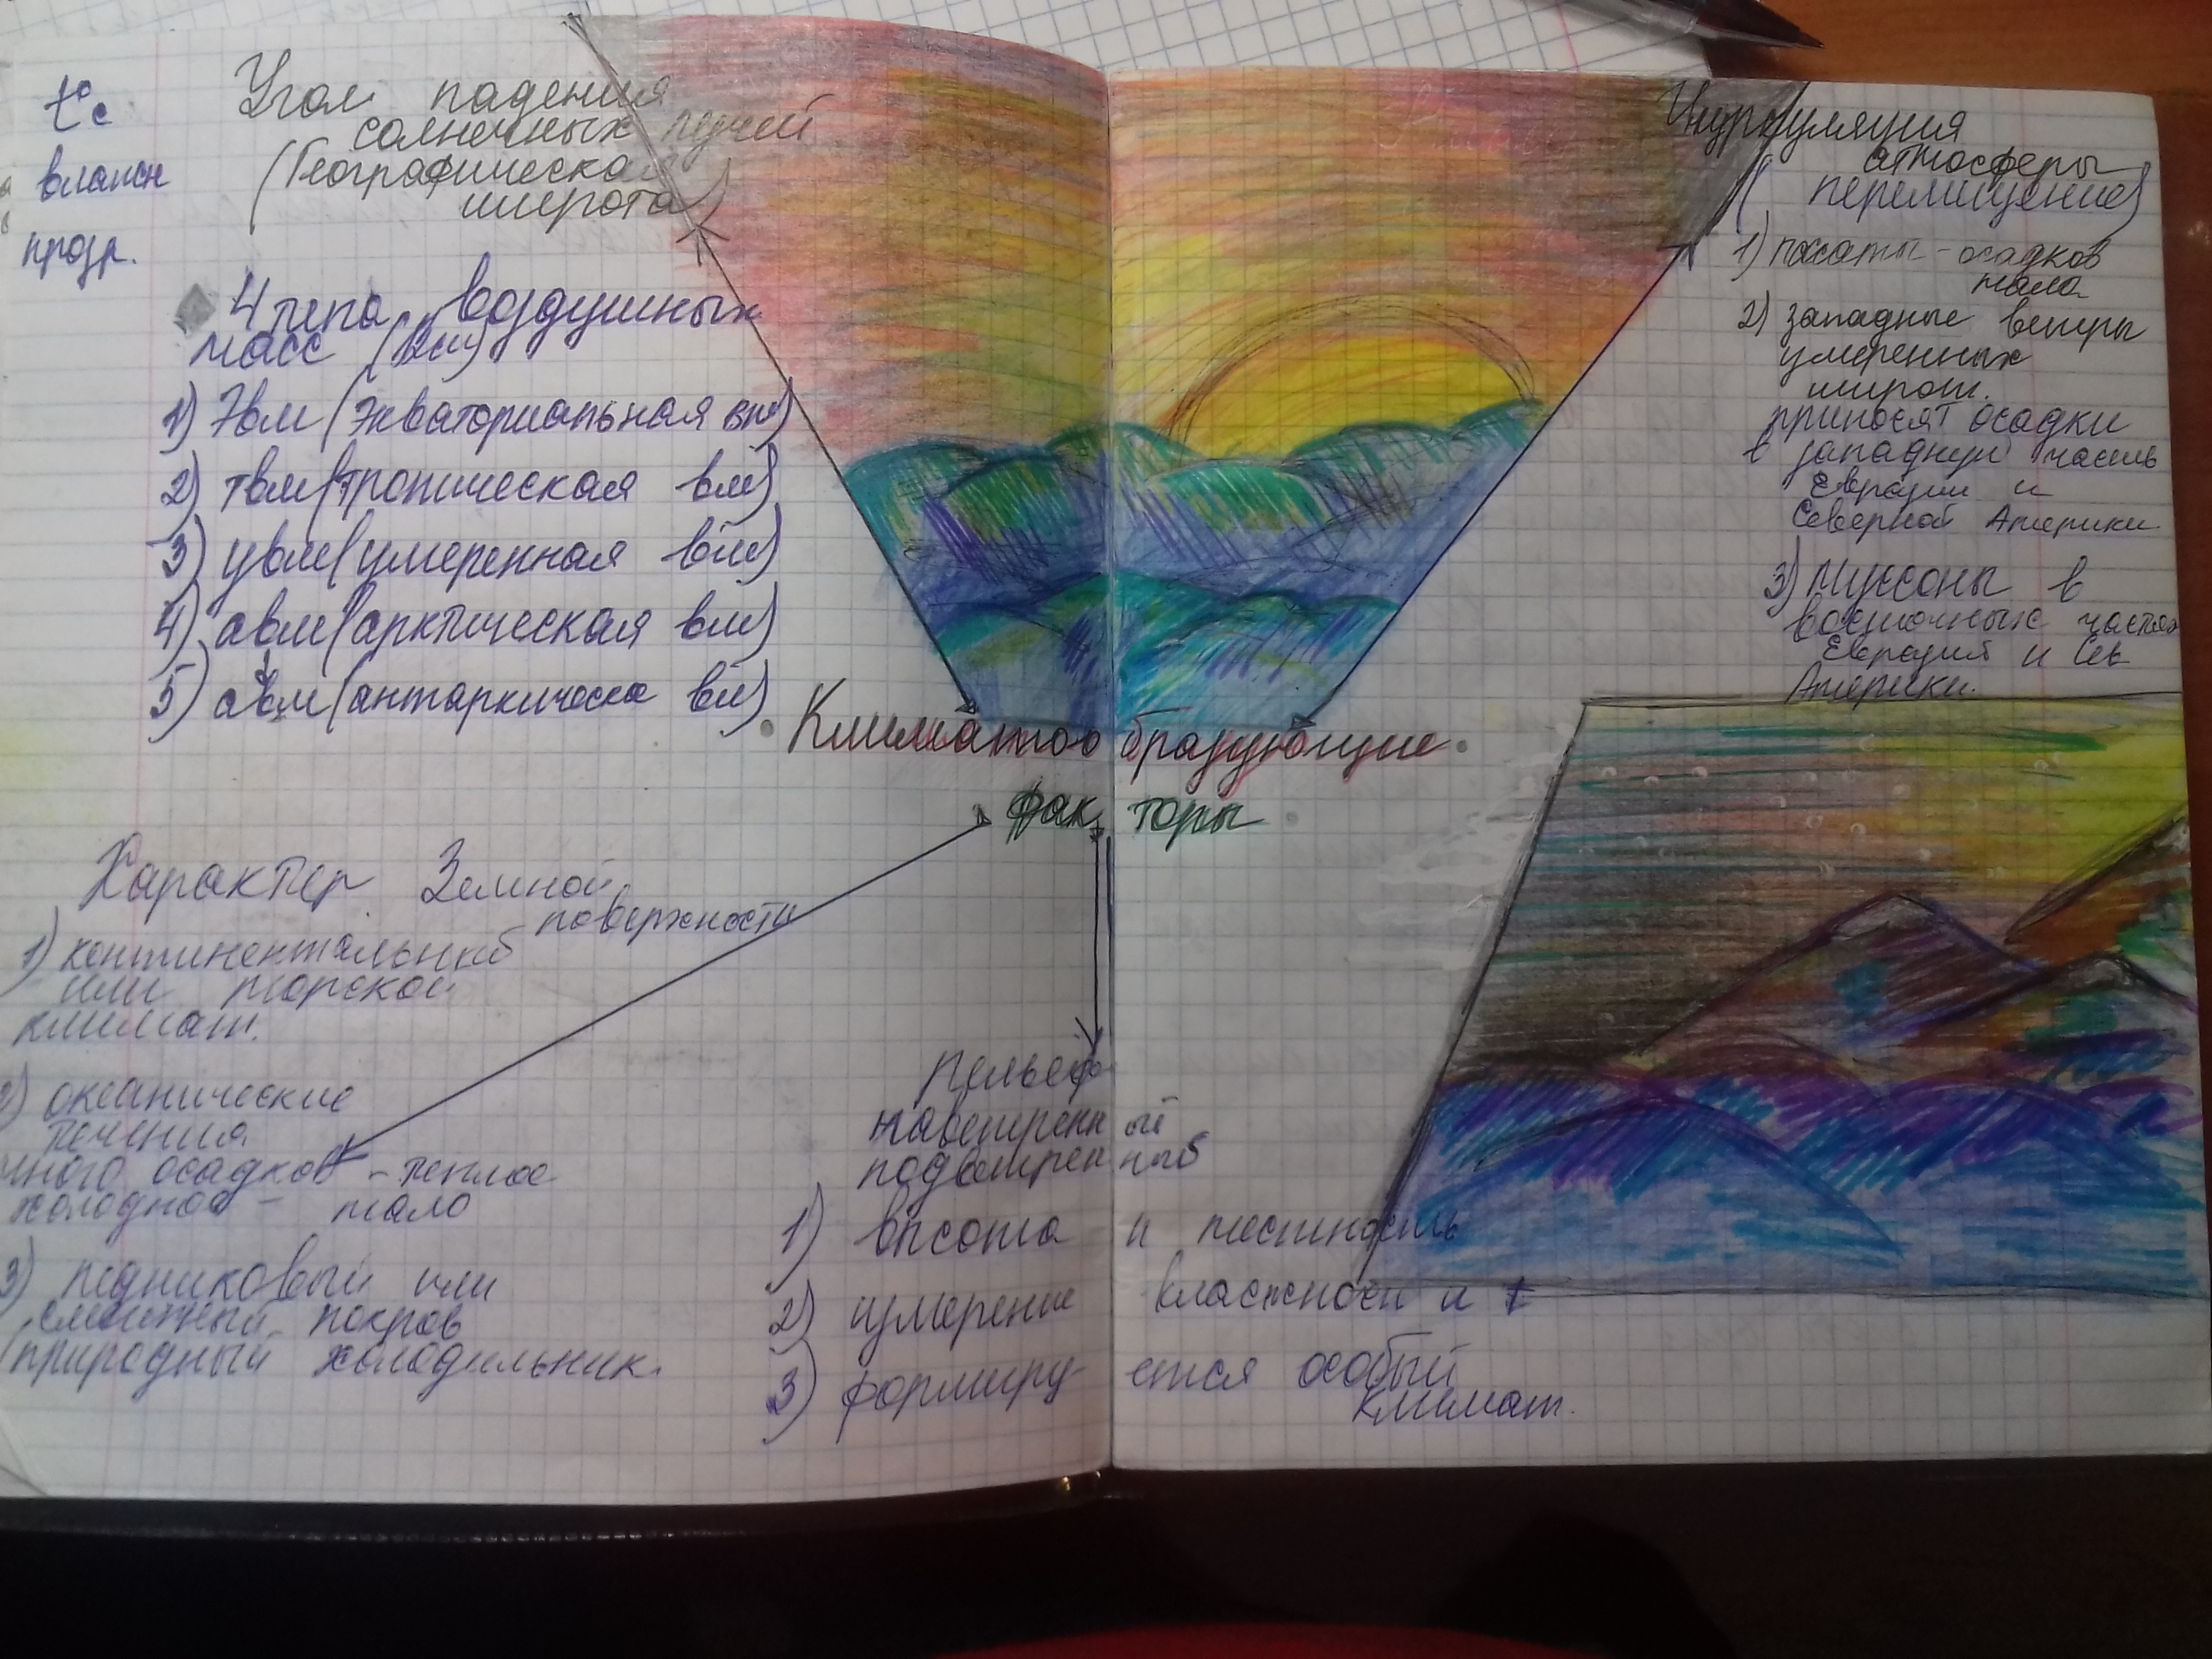 t°c
влажн
прозр.
Угол падения
солнечных лучей
(Географическая
широта)
4 типа воздушных
масс (вм)
1) Эвм (Экваториальная вм)
2) твм (тропическая вм)
3) увм (умеренная вм)
4) авм (арктическая вм)
5) авм (антарктическа вм)
Циркуляция
атмосферы
(перемещение)
1) пассаты - осадков
мало
2) западные ветры
умеренных
широт.
приносят осадки
в западную часть
Евразии и
Северной Америки
3) Муссоны в
восточных частях
Евразии и Сев
Америки.
Климатообразующие
факторы
Характер Земной
поверхности
1) континентальный
или морской
климат.
2) океанические
течения
много осадков - теплое
холодное - мало
3) ледниковый или
снежный покров
(природный холодильник.
Рельеф
наветренный
подветренный
1) высота и местность
2) измерение влажности и t
3) формируется особый
климат.